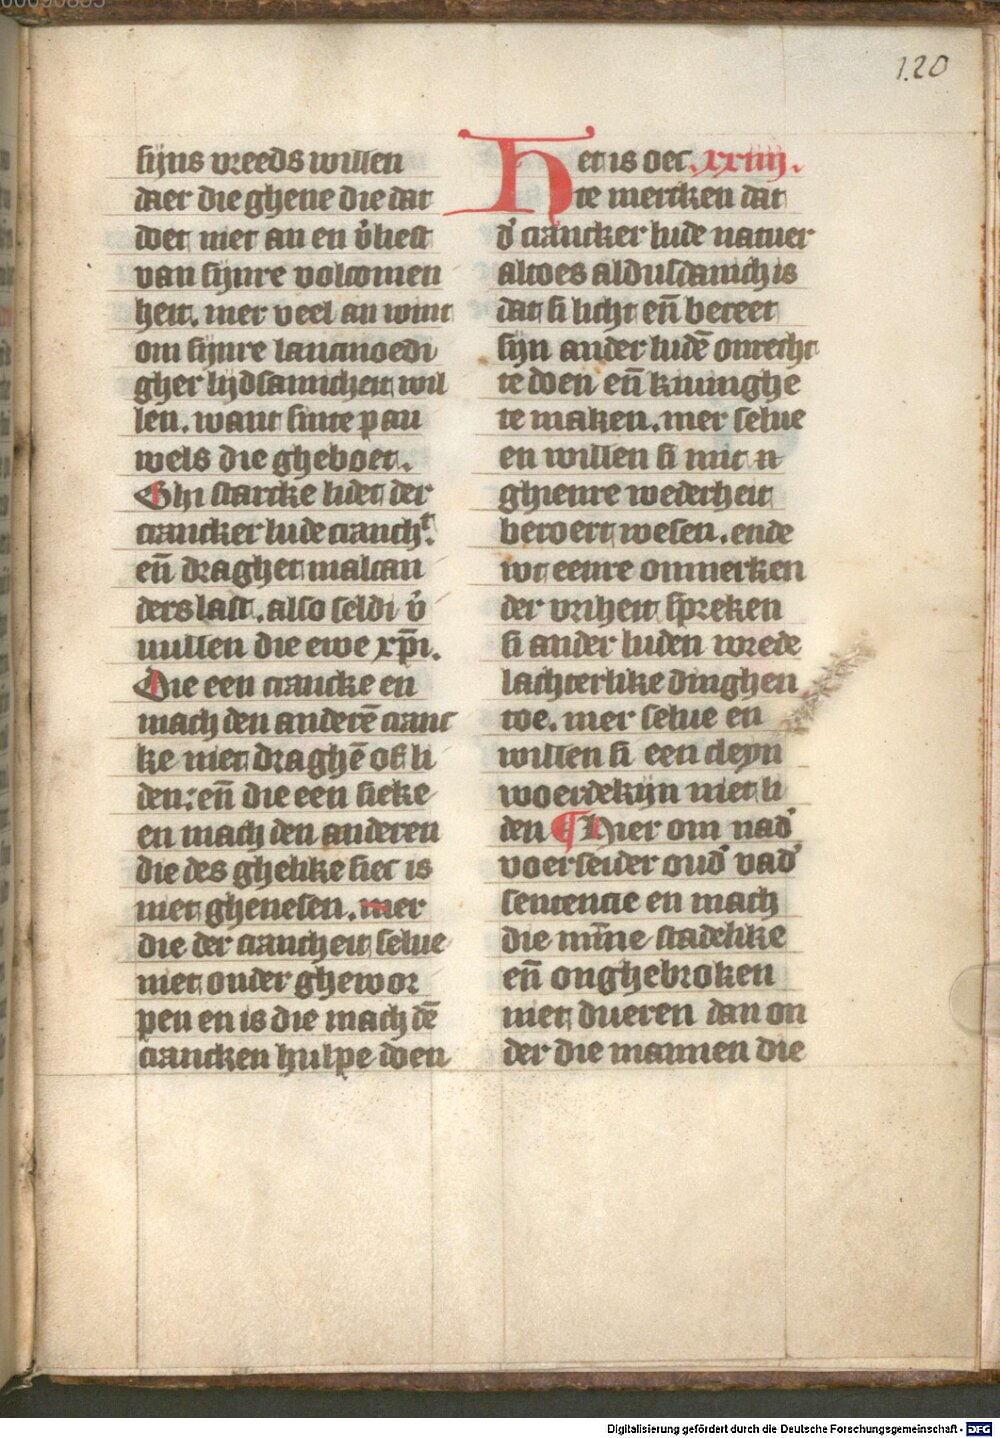 120
sijns vreeds willen
daer die ghene die dat
doet niet an en v̉liest
van sijnre volcomen
heit. mer veel an wint
om sijnre lancmoedi
gher lijdsamicheit wil
len. want sinte pau
wels die gheboet.
Ghi starcke lidet der
crancker lude cranchᵗ.
en̄ draghet malcan
ders last. also seldi v̉
uullen die ewe xp̄i.
Die een crancke en
mach den anderē cranc
ke niet draghē of li
den: en̄ die een sieke
en mach den anderen
die des ghelike siec is
niet ghenesen. mer
die der crancheit selue
niet onder ghewor
pen en is die mach dē
crancken hulpe doen
Het is oec. xxiiij.
te mercken dat
d̉ crancker lude natuer
altoes aldusdanich is
dat si licht en̄ bereet
sijn ander ludē onrecht
te doen en̄ kiuinghe
te maken. mer selue
en willen si mit n
ghienre wederheit
beroert wesen. ende
wt eenre onmerken
der vriheit spreken
si ander luden wrede
lachterlike dinghen
toe. mer selue en
willen si een cleyn
woerdekijn niet li
den ¶ Hier om nad̉
voerseider oud̉ vad̉
sentencie en mach
die mīne stadelike
en̄ onghebroken
niet dueren dan on
der die mannen die
Digitalisierung gefördert durch die Deutsche Forschungsgemeinschaft - DFG